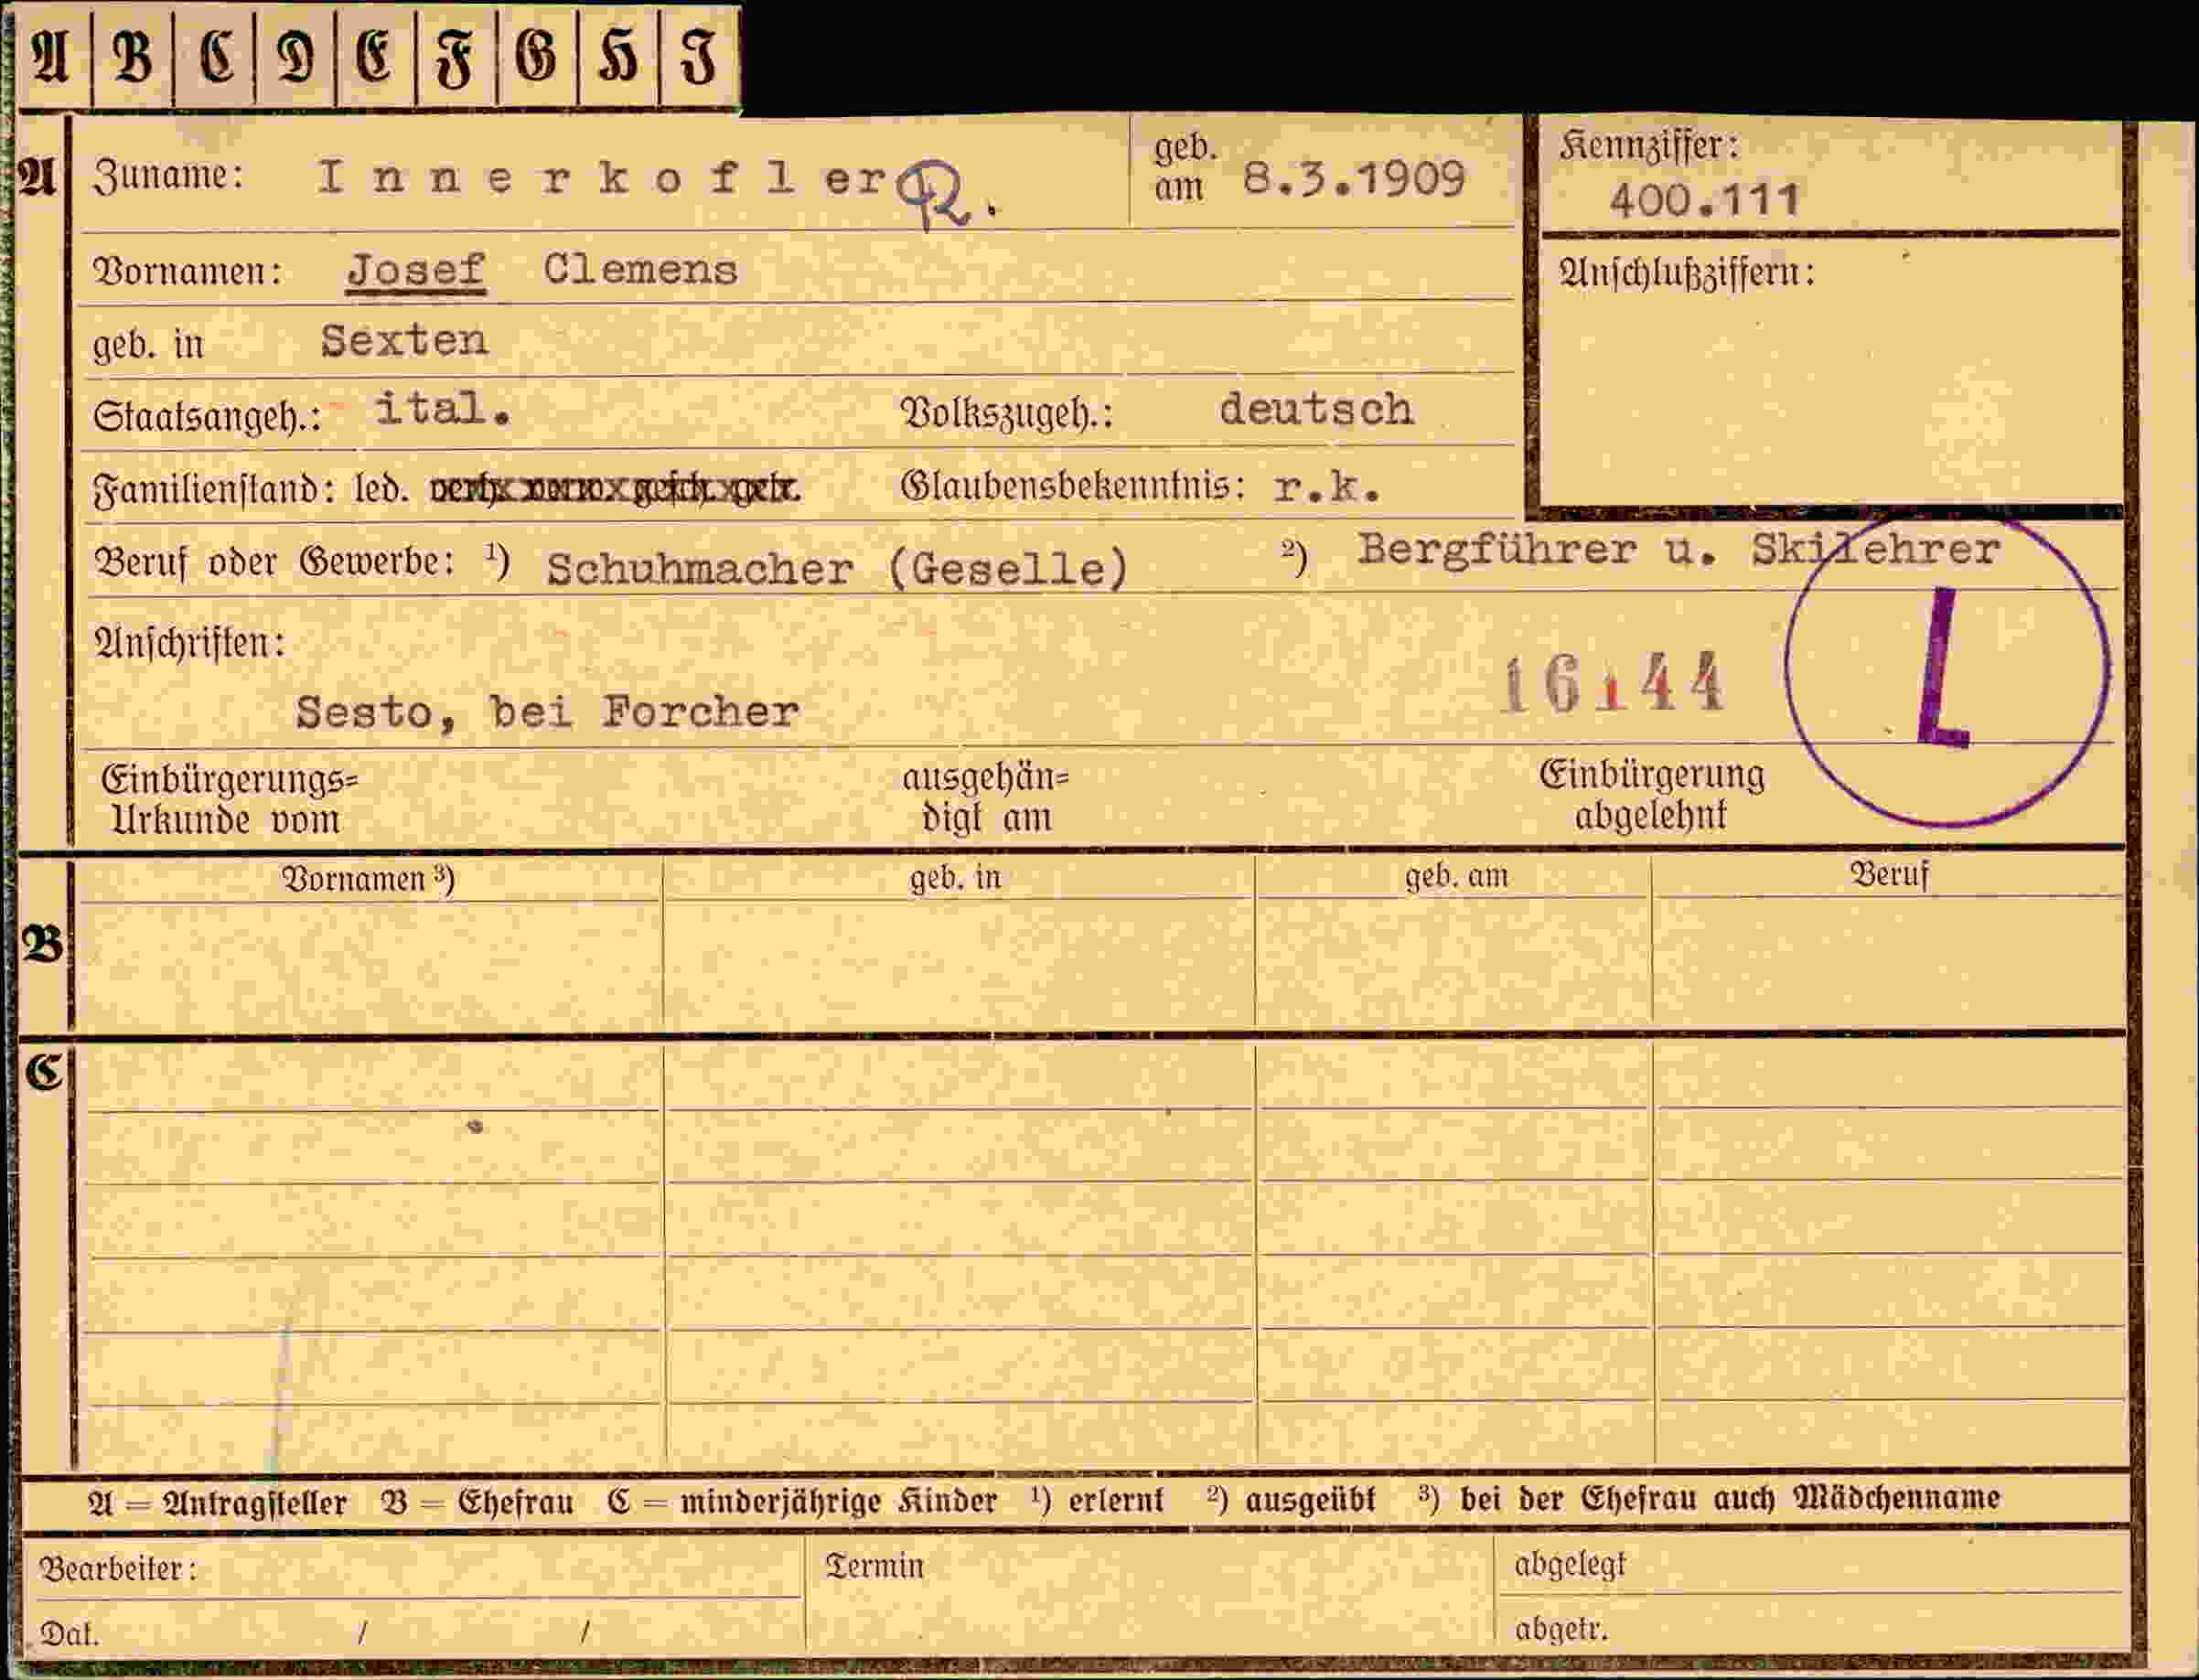 A B C D E F G H I
A Zuname: Innerkofler R. geb. am 8.3.1909 Kennziffer:
400.111
Vornamen: Josef Clemens Anschlußziffern:
geb. in Sexten
Staatsangeh.: ital. Volkszugeh.: deutsch
Familienstand: led. verh. verw. gesch. getr. Glaubensbekenntnis: r.k.
Beruf oder Gewerbe: ¹) Schuhmacher (Geselle) ²) Bergführer u. Skilehrer
Anschriften:
16144 L
Sesto, bei Forcher
Einbürgerungs= ausgehän= Einbürgerung
Urkunde vom digt am abgelehnt
Vornamen ³) geb. in geb. am Beruf
B
C
A = Antragsteller B = Ehefrau C = minderjährige Kinder ¹) erlernt ²) ausgeübt ³) bei der Ehefrau auch Mädchenname
Bearbeiter: Termin abgelegt
Dat. / / abgetr.